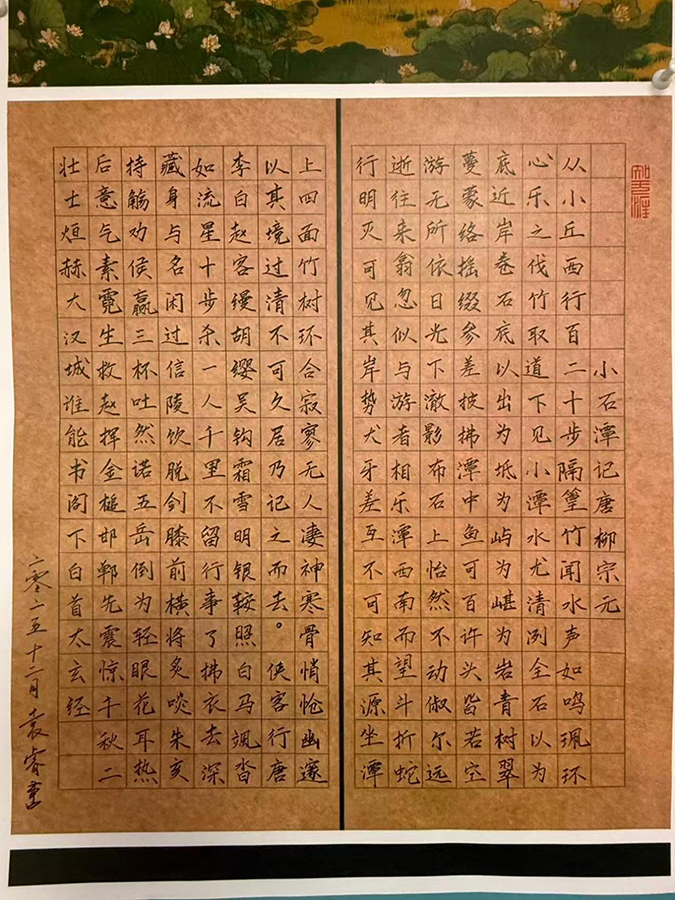 知无涯
小石潭记唐柳宗元
从小丘西行百二十步隔篁竹闻水声如鸣珮环
心乐之伐竹取道下见小潭水尤清冽全石以为
底近岸卷石底以出为坻为屿为嵁为岩青树翠
蔓蒙络摇缀参差披拂潭中鱼可百许头皆若空
游无所依日光下澈影布石上怡然不动俶尔远
逝往来翕忽似与游者相乐潭西南而望斗折蛇
行明灭可见其岸势犬牙差互不可知其源坐潭
上四面竹树环合寂寥无人凄神寒骨悄怆幽邃
以其境过清不可久居乃记之而去。侠客行唐
李白赵客缦胡缨吴钩霜雪明银鞍照白马飒沓
如流星十步杀一人千里不留行事了拂衣去深
藏身与名闲过信陵饮脱剑膝前横将炙啖朱亥
持觞劝侯嬴三杯吐然诺五岳倒为轻眼花耳热
后意气素霓生救赵挥金槌邯郸先震惊千秋二
壮士烜赫大汉城谁能书阁下白首太玄经
二零二五十二月袁睿书